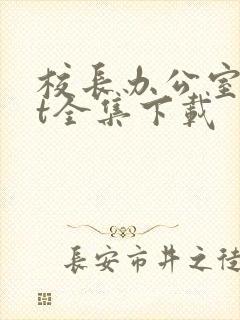 校長办公室
t全集下載
長安市井之徒